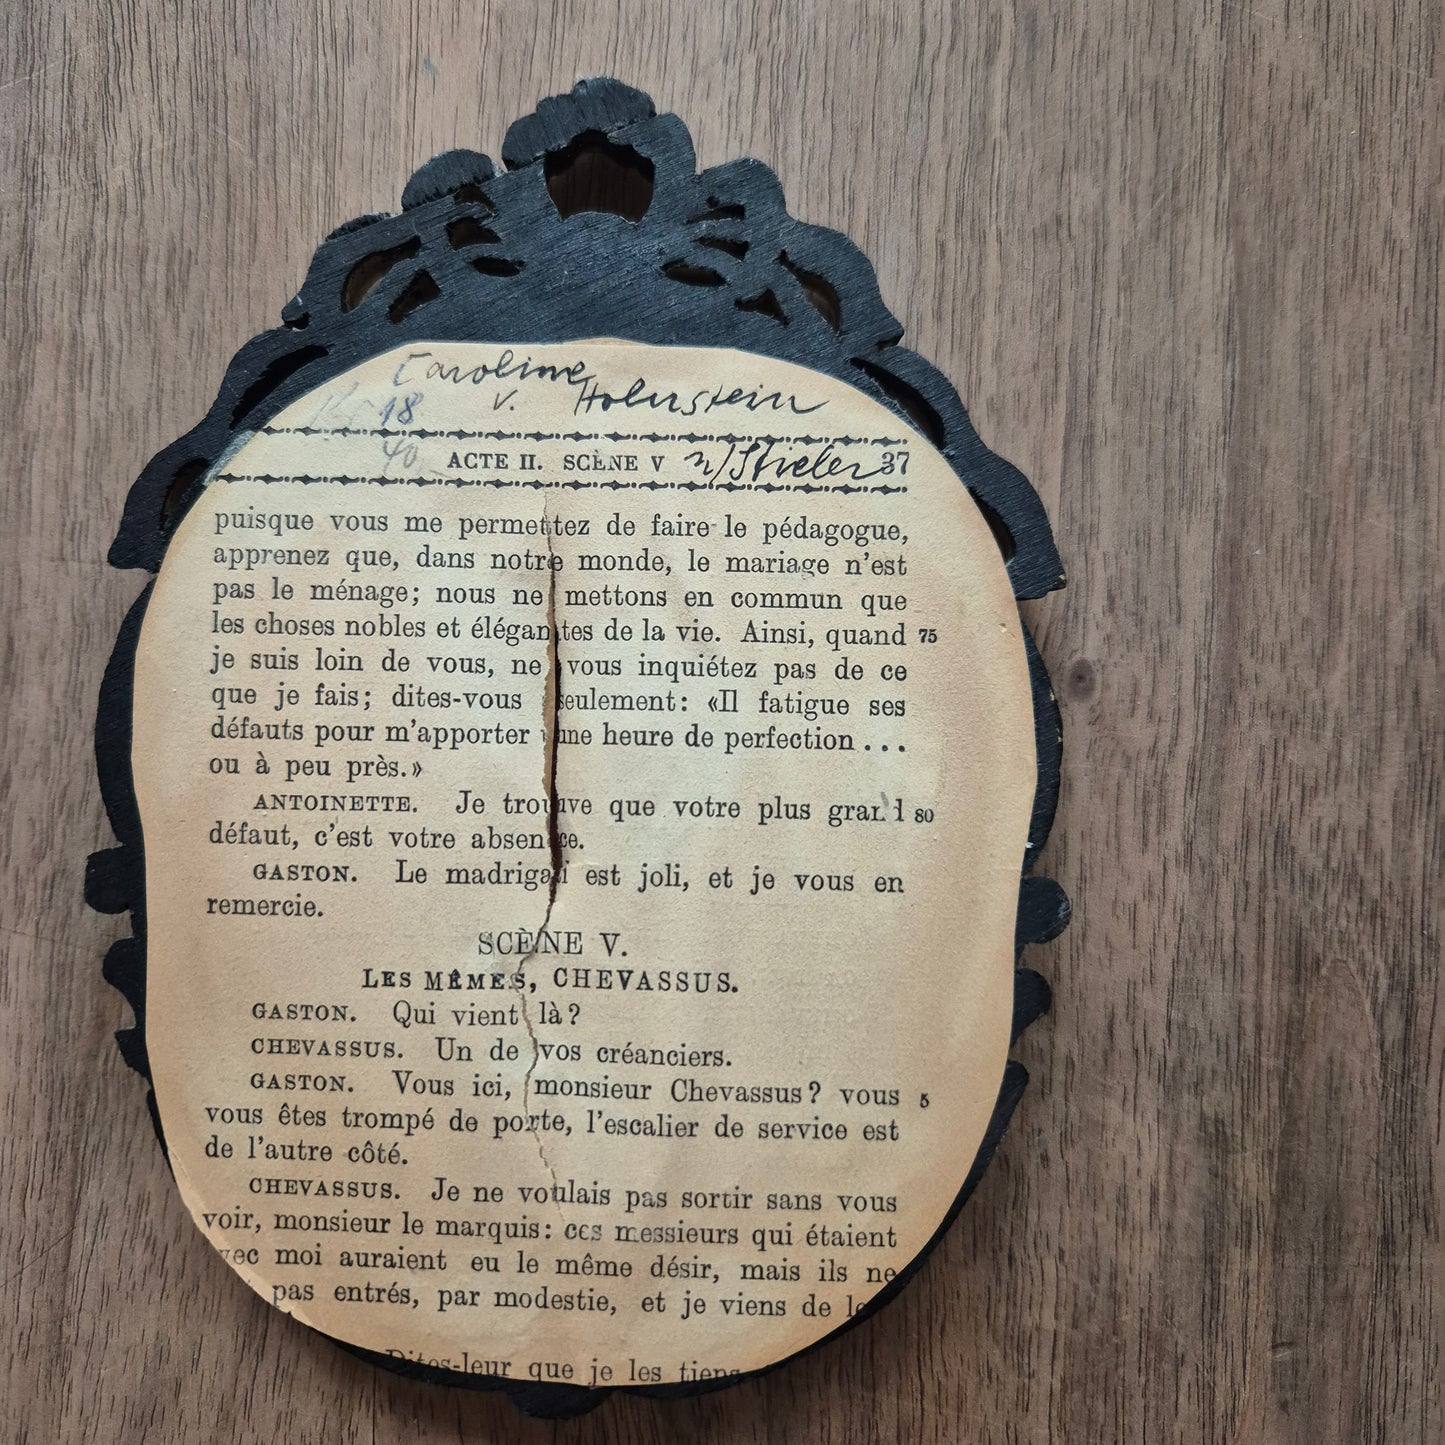 Caroline
v. Holnstein
18
40
ACTE II. SCÈNE V n/Stieler 37
puisque vous me permettez de faire le pédagogue,
apprenez que, dans notre monde, le mariage n'est
pas le ménage; nous ne mettons en commun que
les choses nobles et élégantes de la vie. Ainsi, quand 75
je suis loin de vous, ne vous inquiétez pas de ce
que je fais; dites-vous seulement: «Il fatigue ses
défauts pour m'apporter une heure de perfection...
ou à peu près.»
ANTOINETTE. Je trouve que votre plus grand 80
défaut, c'est votre absence.
GASTON. Le madrigal est joli, et je vous en
remercie.
SCÈNE V.
LES MÊMES, CHEVASSUS.
GASTON. Qui vient là?
CHEVASSUS. Un de vos créanciers.
GASTON. Vous ici, monsieur Chevassus? vous 5
vous êtes trompé de porte, l'escalier de service est
de l'autre côté.
CHEVASSUS. Je ne voulais pas sortir sans vous
voir, monsieur le marquis: ces messieurs qui étaient
avec moi auraient eu le même désir, mais ils ne
pas entrés, par modestie, et je viens de
Dites-leur que je les tiens